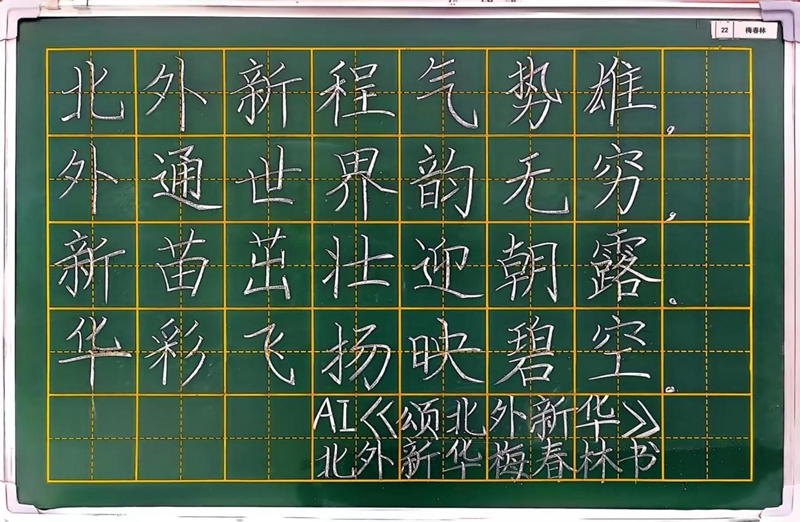 22 梅春林
北外新程气势雄，
外通世界韵无穷，
新苗茁壮迎朝露。
华彩飞扬映碧空。
AI《颂北外新华》
北外新华梅春林书